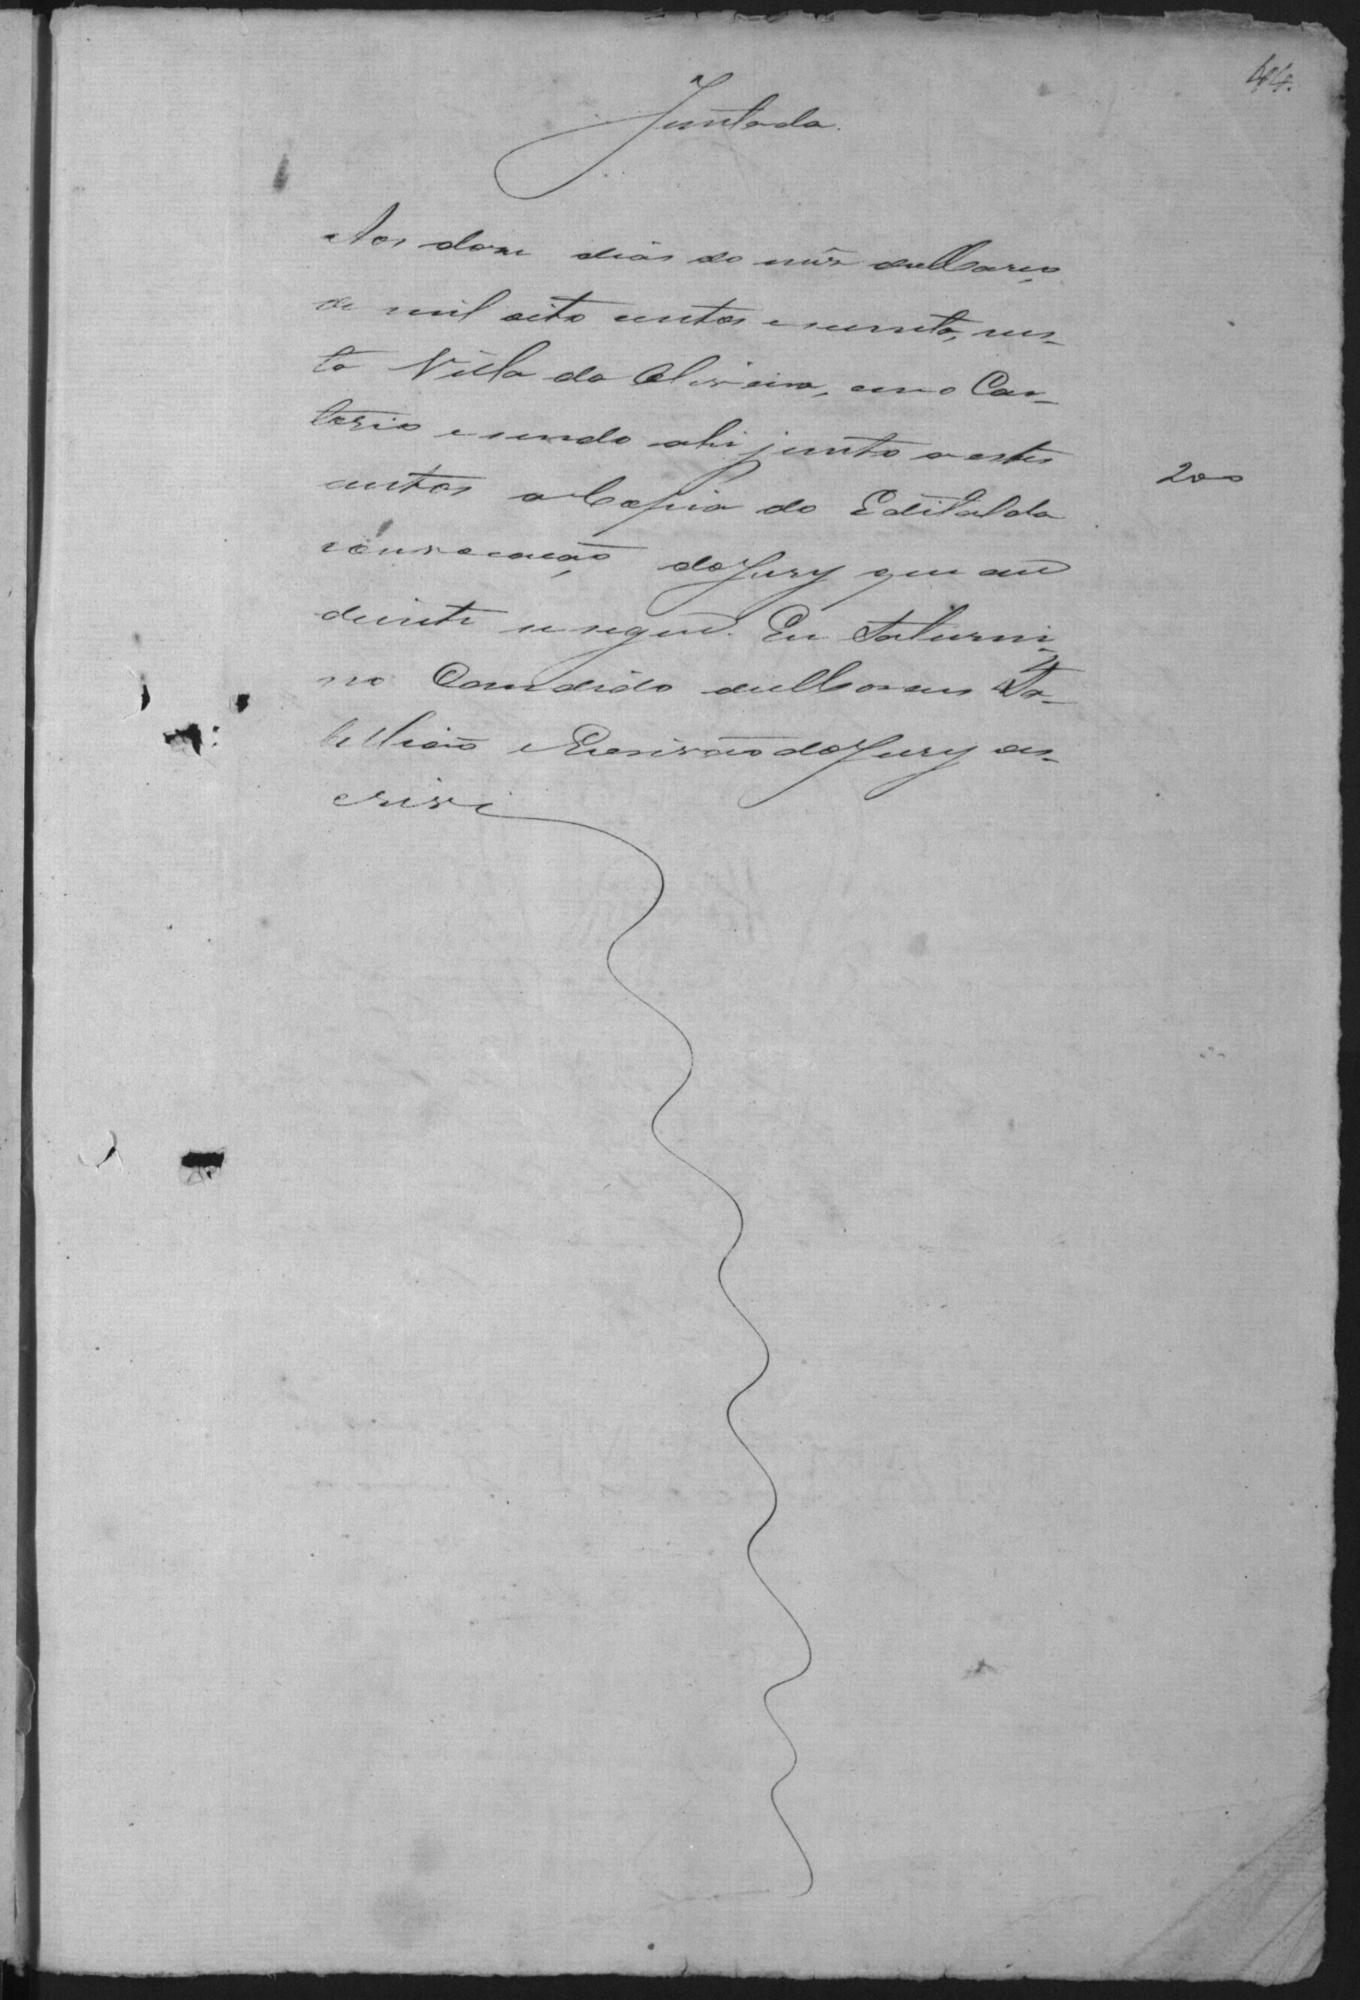 44.
Juntada.
Aos doze dias do mês de Março
de mil oito centos e noventa, nes-
ta Villa da Oliveira, em o Car-
torio e sendo ahi junto a estes
autos a Copia do Edital da
200
convocação do Jury que au
deiante se segue. Eu Saturni-
no Candido de Moraes Ta-
bellião e Escrivão do Jury es-
crivi